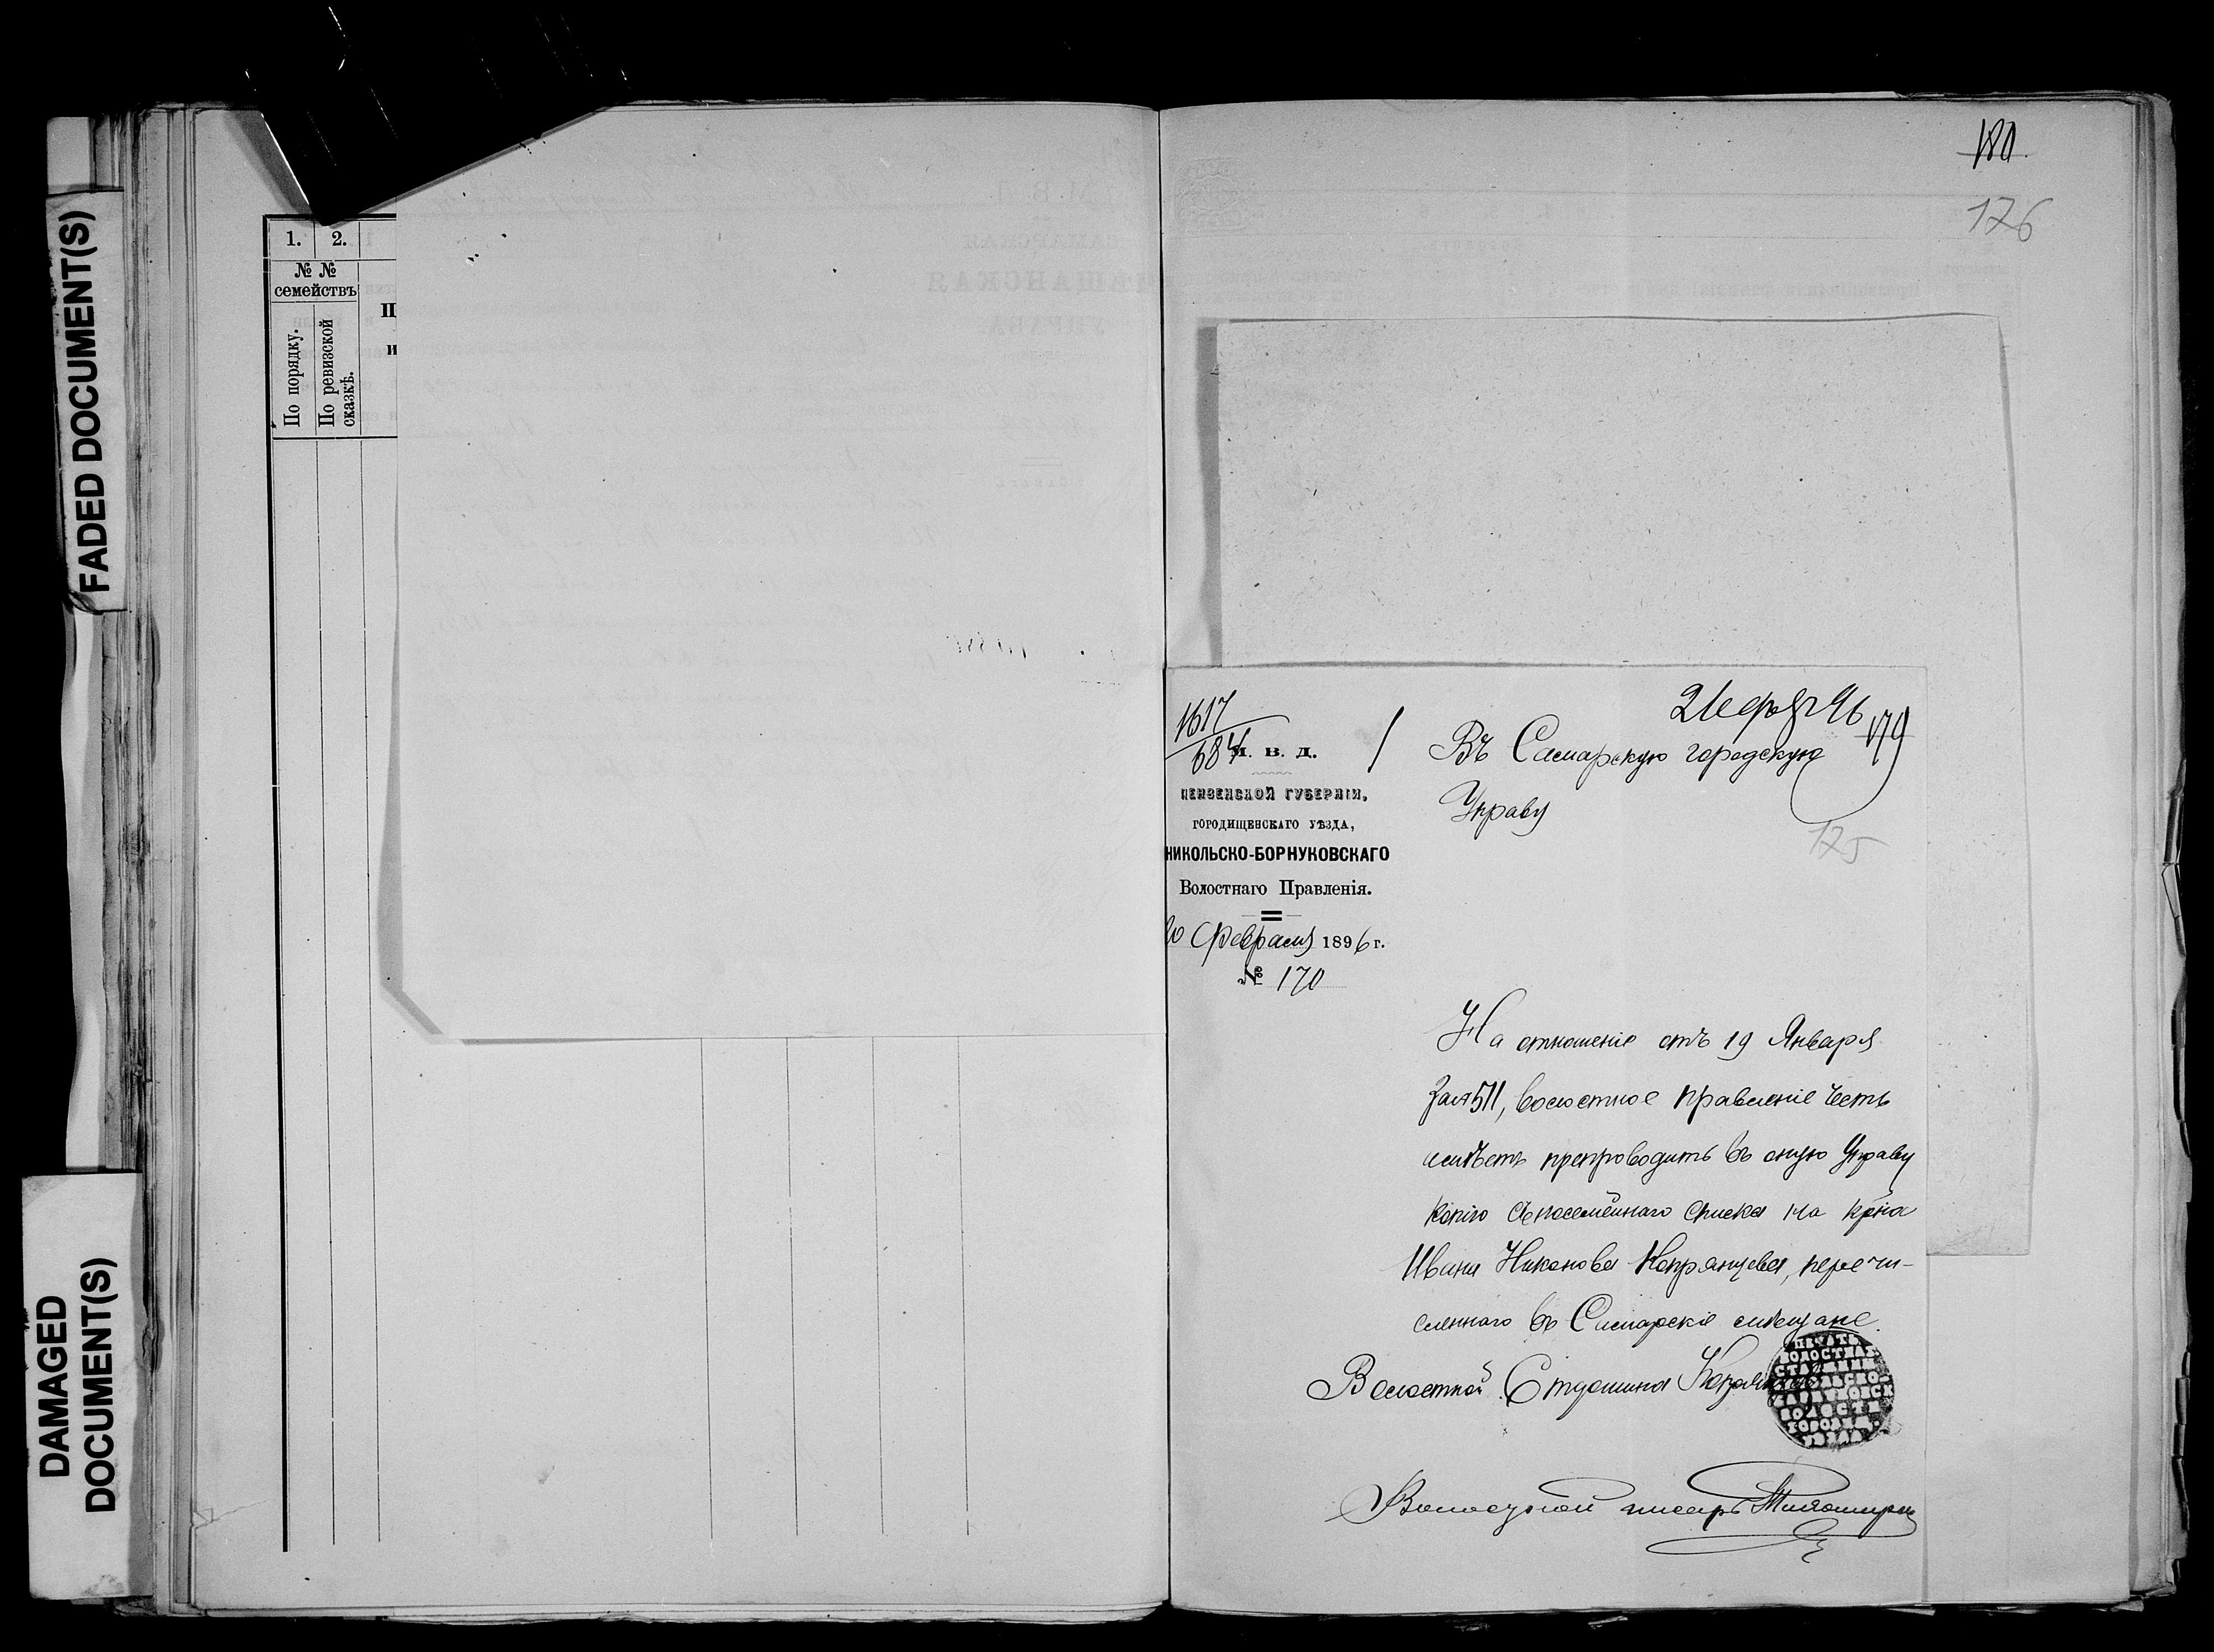 FADED DOCUMENT(S)
DAMAGED
DOCUMENT(S)
1. 2.
№ № 
семействъ
По порядку.
По ревизской
сказкѣ.
П
и
180.
176
21 февр 96
179
1617
684
М. В. Д.
ПЕНЗЕНСКОЙ ГУБЕРНІИ,
ГОРОДИЩЕНСКАГО УѢЗДА,
НИКОЛЬСКО-БОРНУКОВСКАГО
Волостнаго Правленія.
10 Февраля 1896 г.
№ 170
Въ Самарскую городскую
Управу
175
На отношеніе отъ 19 Января
за № 511, волостное правленіе честь
имѣетъ препроводить въ оную Управу
копію съ посемейнаго списка на крна
Ивана Никонова Копрянцева, перечи-
сленнаго въ Самарскіе мѣщане.
Волостной Старшина
ПЕЧАТЬ
ВОЛОСТНАГ
СТАРШИНЫ
НИКОЛЬСКО-
БАРНУКОВСК
ВОЛОСТИ
ГОРОДИЩ.
УѢЗДА
Волостной писарь